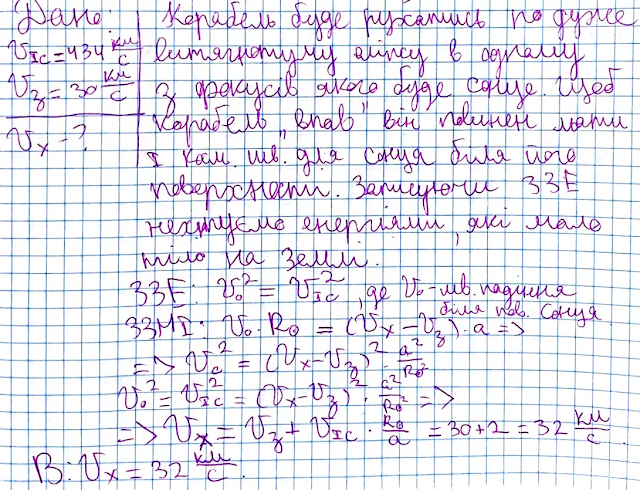 Дано:
V_IC = 434 км/с
V_з = 30 км/с
V_x - ?
Корабель буде рухатись по дуже
витягнутому еліпсу в одному
з фокусів якого буде сонце. Щоб
корабель "впав" він повинен мати
I косм. шв. для сонця біля його
поверхности. Записуючи ЗЗЕ
нехтуємо енергіями, які мало
тіло на Землі.
ЗЗЕ: V_0² = V_IC², де V_0 - шв. падіння
біля пов. Сонця
ЗЗМІ: V_0 · R_0 = (V_x - V_з) · a =>
=> V_0² = (V_x - V_з)² · a²/R_0²
V_0² = V_IC² = (V_x - V_з)² · a²/R_0² =>
=> V_x = V_з + V_IC · R_0/a = 30 + 2 = 32 км/с.
В: V_x = 32 км/с.